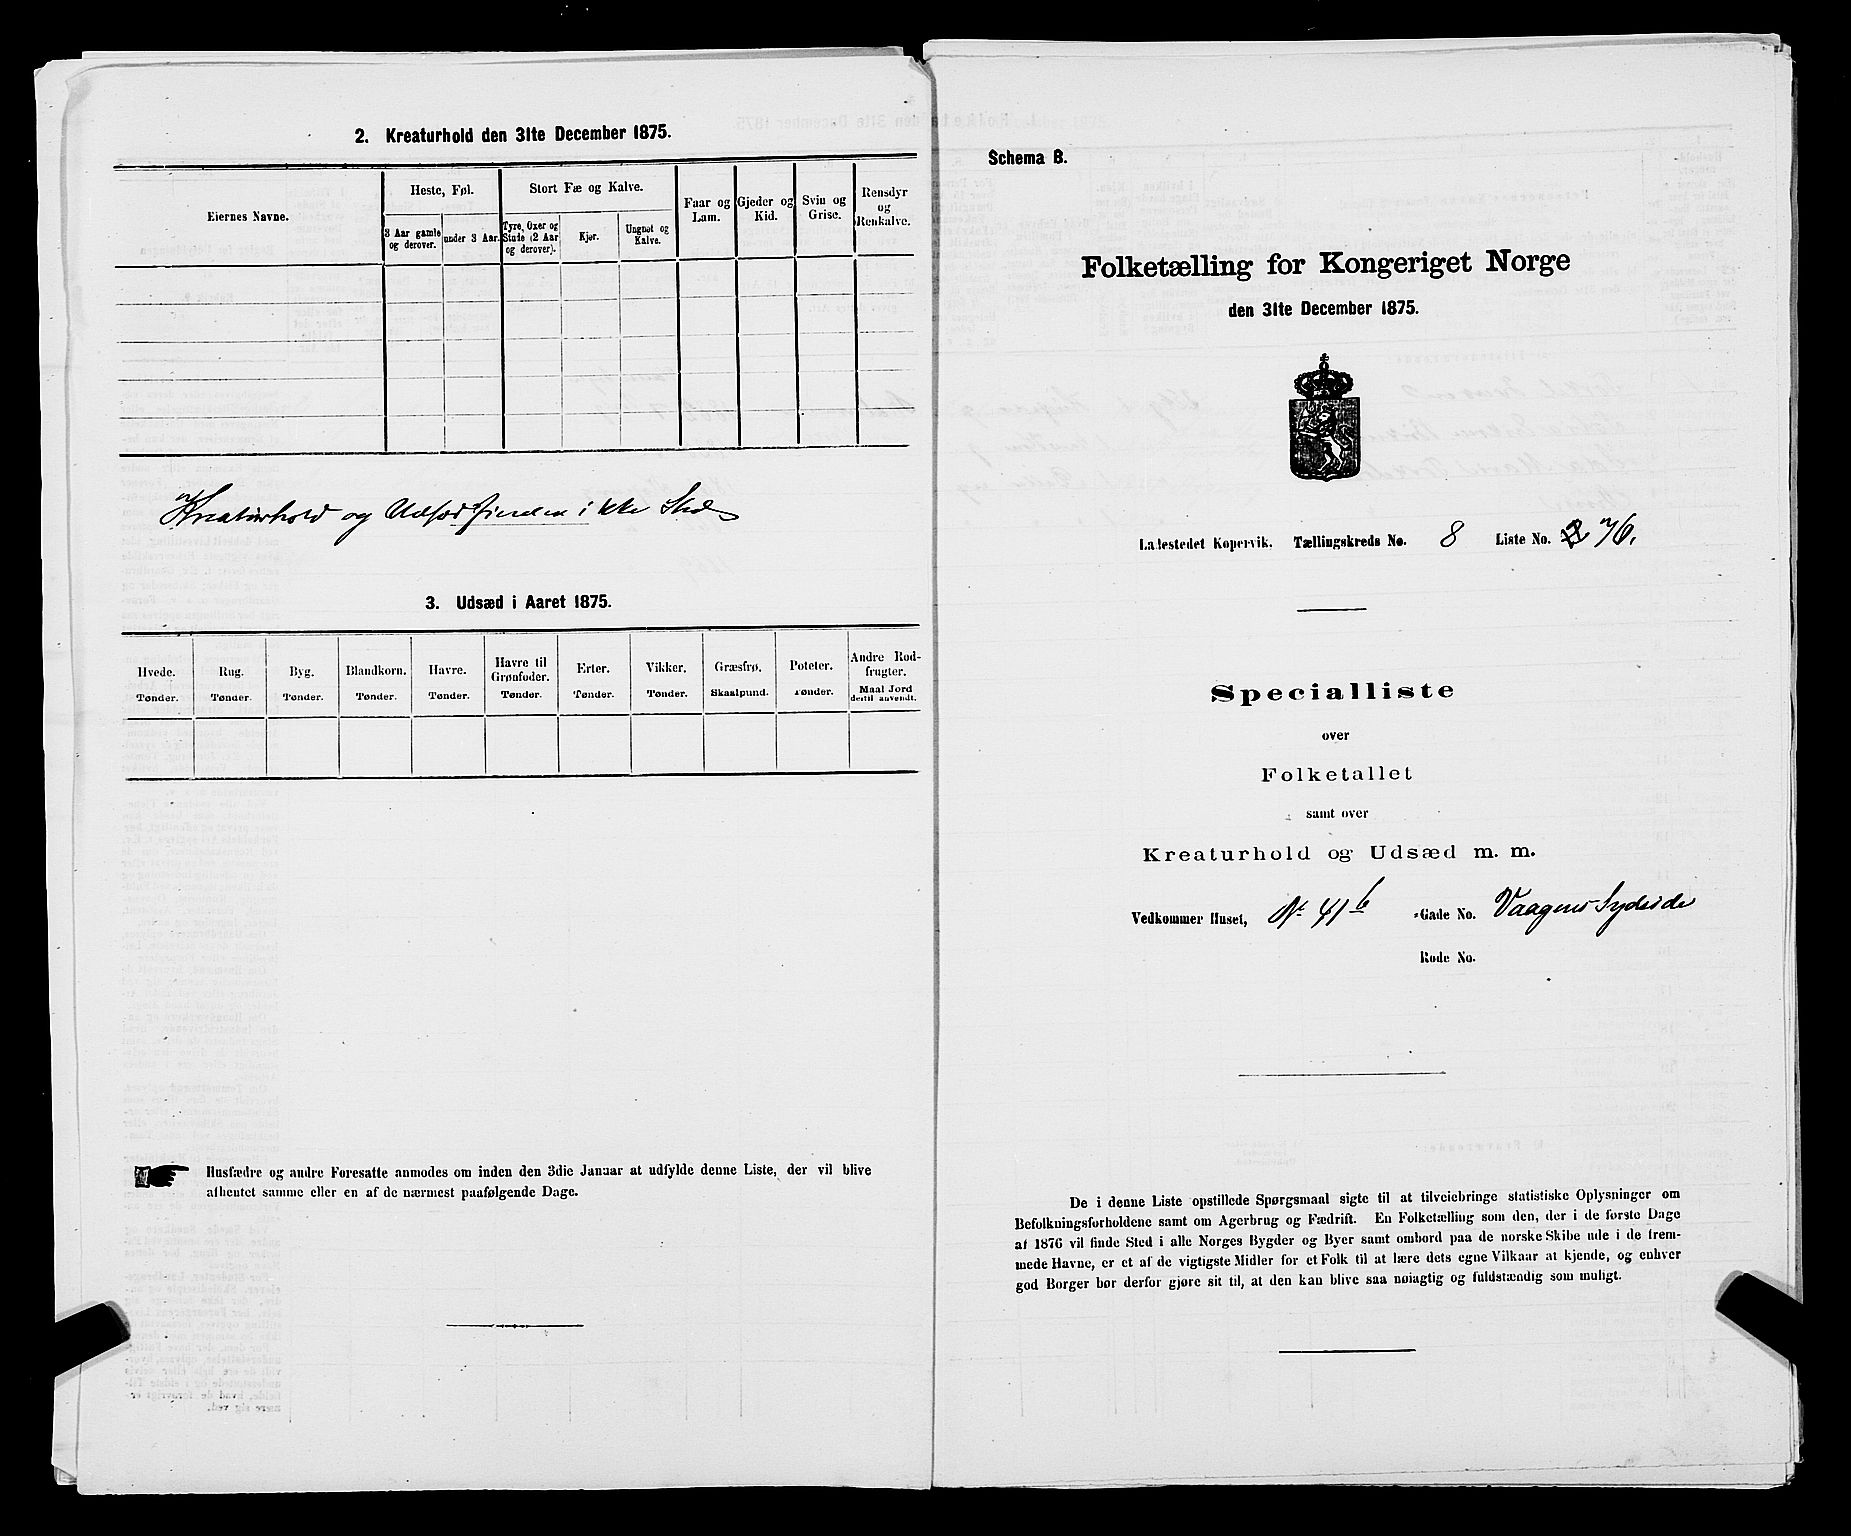 2. Kreaturhold den 31te December 1875.
Eiernes Navne.
Heste, Føl.
Stort Fæ og Kalve.
Faar og Lam.
Gjeder og Kid.
Svin og Grise.
Rensdyr og Renkalve.
3 Aar gamle og derover.
under 3 Aar.
Tyre, Oxer og Stude (2 Aar og derover).
Kjør.
Ungnøt og Kalve.
Kreaturhold og Udsæd findes ikke Sted
3. Udsæd i Aaret 1875.
Hvede.
Rug.
Byg.
Blandkorn.
Havre.
Havre til Grønfoder.
Erter.
Vikker.
Græsfrø.
Poteter.
Andre Rodfrugter.
Tønder.
Tønder.
Tønder.
Tønder.
Tønder.
Tønder.
Tønder.
Tønder.
Skaalpund.
Tønder.
Maal Jord dertil anvendt.
Husfædre og andre Foresatte anmodes om inden den 3die Januar at udfylde denne Liste, der vil blive
afhentet samme eller en af de nærmest paafølgende Dage.
Schema B.
Folketælling for Kongeriget Norge
den 31te December 1875.
Ladestedet Kopervik. Tællingskreds No. 8 Liste No. 76.
Specialliste
over
Folketallet
samt over
Kreaturhold og Udsæd m. m.
Vedkommer Huset, No 41b -Gade No. Vaagens Sydside
Rode No.
De i denne Liste opstillede Spørgsmaal sigte til at tilveiebringe statistiske Oplysninger om
Befolkningsforholdene samt om Agerbrug og Fædrift. En Folketælling som den, der i de første Dage
af 1876 vil finde Sted i alle Norges Bygder og Byer samt ombord paa de norske Skibe ude i de frem-
mede Havne, er et af de vigtigste Midler for et Folk til at lære dets egne Vilkaar at kjende, og enhver
god Borger bør derfor gjøre sit til, at den kan blive saa nøiagtig og fuldstændig som muligt.